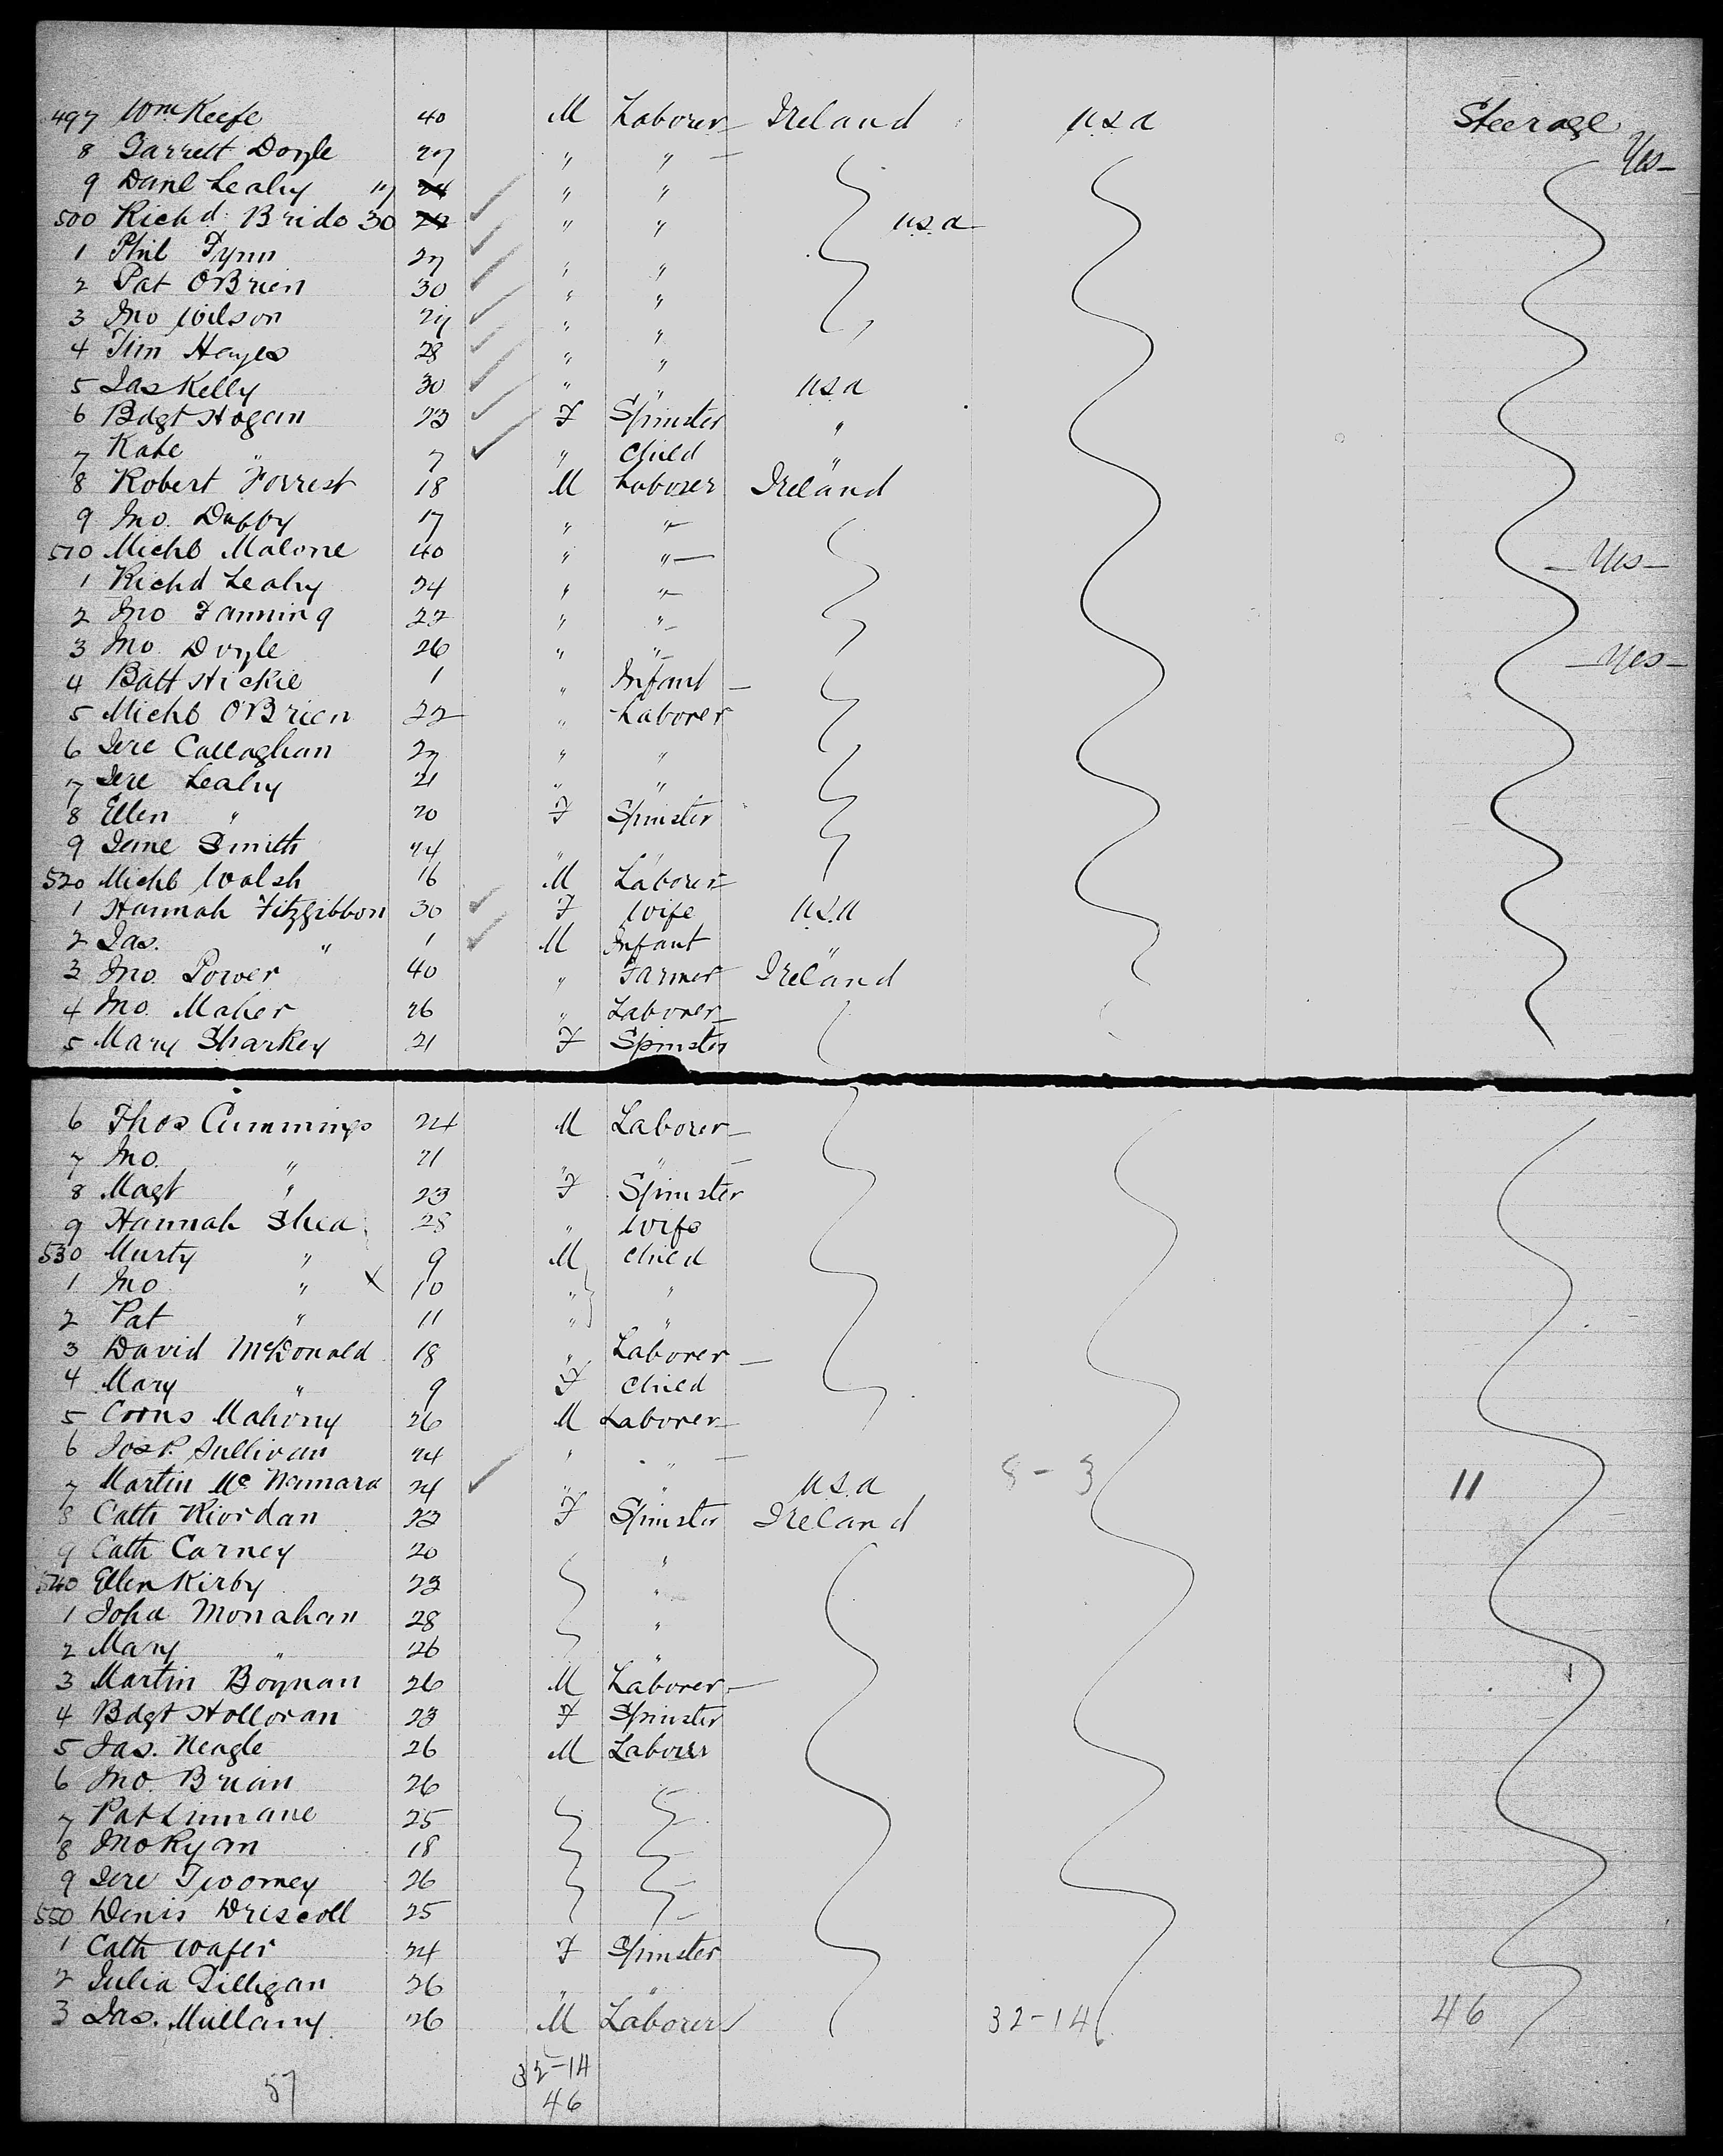 497 Wm Keefe 40 M Laborer Ireland U.S.A Steerage
8 Garrett Doyle 27 " " Yes
9 Danl Leahy 17 24 ✓ " "
500 Richd. Brido 30 24 ✓ " " U.S.A
1 Phil Fynn 27 ✓ " "
2 Pat O'Brien 30 ✓ " "
3 Jno Wilson 27 ✓ " "
4 Tim Hayes 28 ✓ " "
5 Jas Kelly 30 ✓ " " U.S.A
6 Bdgt Hogan 23 ✓ F Spinster "
7 Kate " 7 ✓ " Child "
8 Robert Forrest 18 M Laborer Ireland
9 Jno. Duffy 17 " "
510 Michl Malone 40 " " Yes
1 Richd Leahy 24 " "
2 Jno Fanning 22 " "
3 Jno. Doyle 26 " " Yes
4 Batt Hickie 1 " Infant
5 Michl O'Brien 22 " Laborer
6 Jere Callaghan 27 " "
7 Jere Leahy 21 " "
8 Ellen " 20 F Spinster
9 Jane Smith 44 " "
520 Michl Walsh 16 M Laborer
1 Hannah Fitzgibbon 30 ✓ F Wife U.S.A
2 Jas. " 1 ✓ M Infant "
3 Jno. Power 40 " Farmer Ireland
4 Jno. Maher 26 " Laborer
5 Mary Sharkey 21 F Spinster
6 Thos Cummings 24 M Laborer
7 Jno. " 21 " "
8 Magt " 23 F Spinster
9 Hannah Shea 28 " Wife
530 Murty " 9 M Child
1 Jno " x 10 " "
2 Pat " 11 " "
3 David McDonald 18 " Laborer
4 Mary " 9 F Child
5 Corns Mahony 26 M Laborer
6 Jos P. Sullivan 24 " "
7 Martin McNamara 24 ✓ " " U.S.A 8-3 11
8 Cath Riordan 22 F Spinster Ireland
9 Cath Carney 20 "
540 Ellen Kirby 23 "
1 Joha Monahan 28 "
2 Mary " 26 "
3 Martin Boynan 26 M Laborer
4 Bdgt Holloran 23 F Spinster
5 Jas. Neagle 26 M Laborer
6 Jno. Brian 26
7 Pat Linnane 25
8 Jno Ryan 18
9 Jere Twomey 26
550 Denis Driscoll 25
1 Cath Wafer 24 F Spinster
2 Julia Gilligan 26 " "
3 Jas. Mullany 26 M Laborer 32-14 46
57 32-14
46